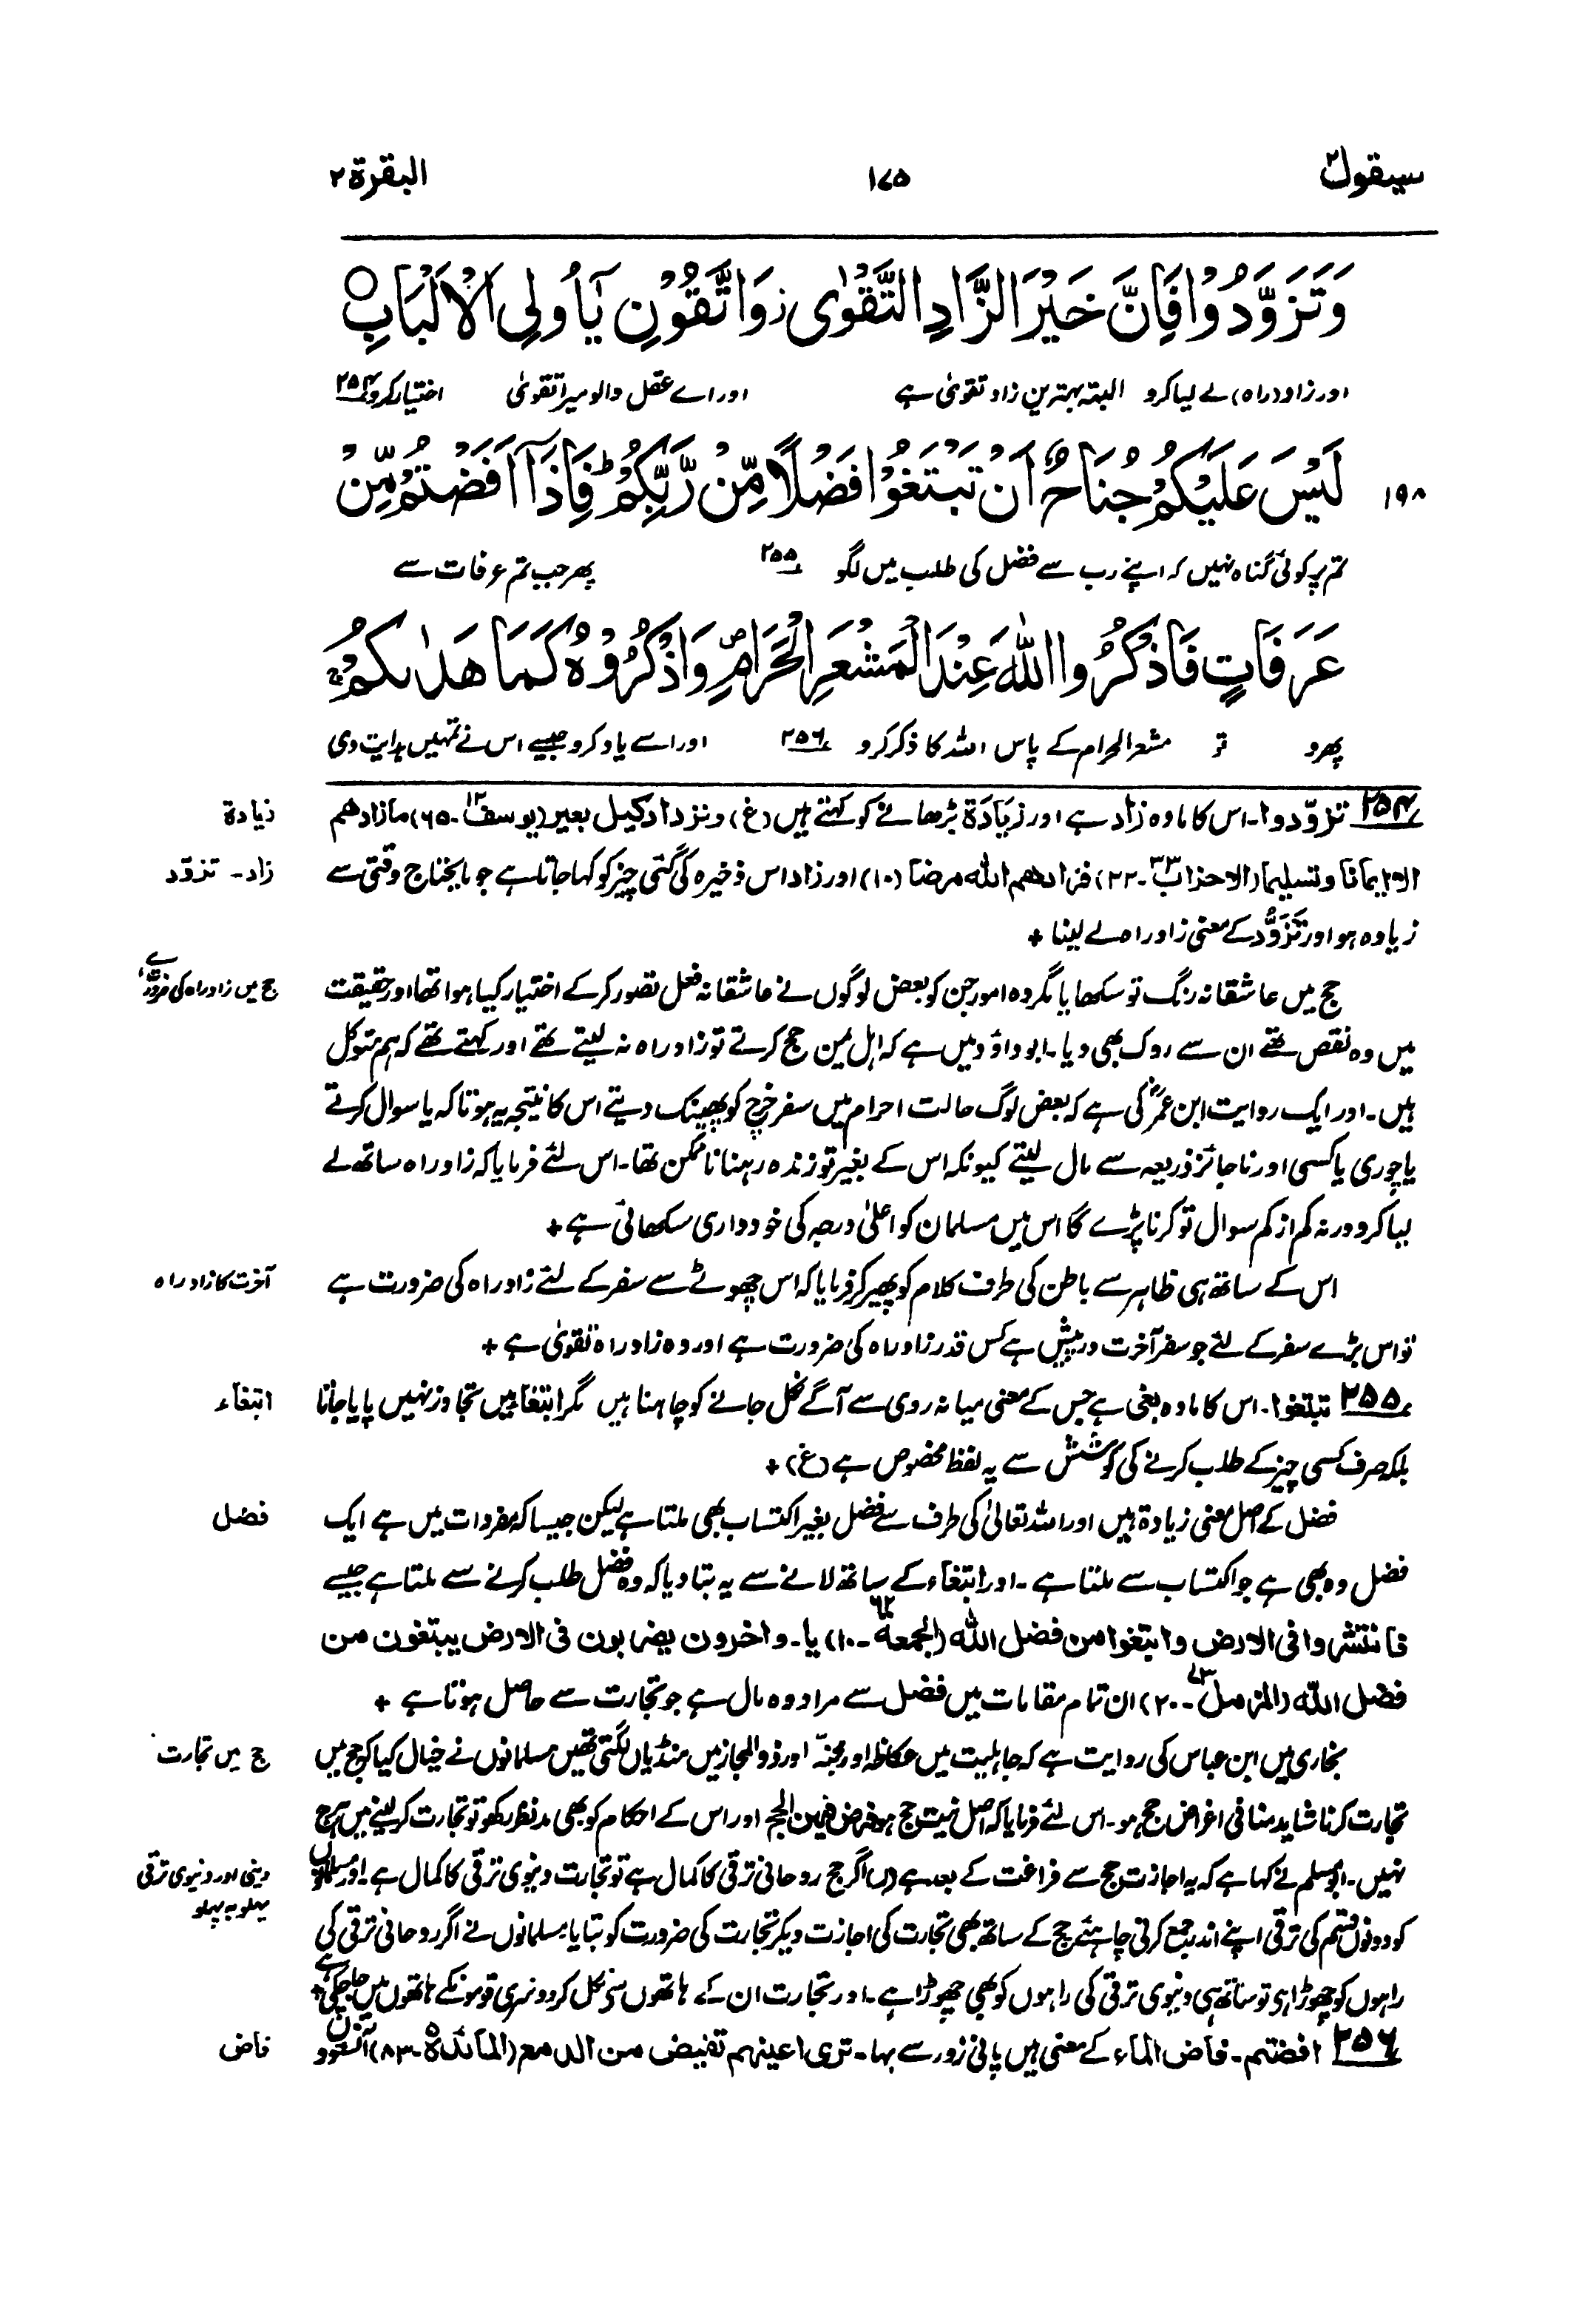 سیقول ۲ ۱۷۵ البقرة ۲
وَتَزَوَّدُوْا فَاِنَّ خَيْرَ الزَّادِ التَّقْوٰى ز وَاتَّقُوْنِ يٰٓاُولِي الْاَلْبَابِ ○
اور زاد (راہ) لے لیا کرو البتہ بہترین زاد تقویٰ ہے اور اے عقل والو میرا تقویٰ اختیار کرو ۲۵۴
۱۹۸ لَيْسَ عَلَيْكُمْ جُنَاحٌ اَنْ تَبْتَغُوْا فَضْلًا مِّنْ رَّبِّكُمْ ط فَاِذَآ اَفَضْتُمْ مِّنْ
تم پر کوئی گناہ نہیں کہ اپنے رب سے فضل کی طلب میں لگو ۲۵۵ پھر جب تم عرفات سے
عَرَفَاتٍ فَاذْكُرُوا اللّٰهَ عِنْدَ الْمَشْعَرِ الْحَرَامِ ص وَاذْكُرُوْهُ كَمَا هَدٰىكُمْ ج
پھرو تو مشعر الحرام کے پاس اللہ کا ذکر کرو ۲۵۶ اور اسے یاد کرو جیسے اس نے تمہیں ہدایت دی
۲۵۴ تزوّدوا۔ اس کا مادہ زاد ہے اور زِیَادَۃ بڑھانے کو کہتے ہیں (غ) ونزداد کیل بعیر (یوسف۱۲۔۶۵) مازادھم
زیادۃ
الا ایمانا وتسلیما (الاحزاب۳۳۔۲۲) فزادھم اللہ مرضا (۱۰) اور زاد اس ذخیرہ کی گئی چیز کو کہا جاتا ہے جو مایحتاج وقتی سے
زاد۔ تزوّد
زیادہ ہو اور تَزَوُّد کے معنی زاد راہ لے لینا +
حج میں عاشقانہ رنگ تو سکھایا مگر وہ امور جن کو بعض لوگوں نے عاشقانہ فعل تصور کر کے اختیار کیا ہوا تھا اور حقیقت
حج میں زاد راہ کی ضرورت ہے
میں وہ نقص تھے ان سے روک بھی دیا۔ ابو داؤد میں ہے کہ اہل یمن حج کرتے تو زاد راہ نہ لیتے تھے اور کہتے تھے کہ ہم متوکل
ہیں۔ اور ایک روایت ابن عمرؓ کی ہے کہ بعض لوگ حالت احرام میں سفر خرچ کو پھینک دیتے اس کا نتیجہ یہ ہوتا کہ یا سوال کرتے
یا چوری یا کسی اور ناجائز ذریعہ سے مال لیتے کیونکہ اس کے بغیر تو زندہ رہنا ناممکن تھا۔ اس لئے فرمایا کہ زاد راہ ساتھ لے
لیا کرو ورنہ کم از کم سوال تو کرنا پڑے گا اس میں مسلمان کو اعلیٰ درجہ کی خودداری سکھائی ہے +
اس کے ساتھ ہی ظاہر سے باطن کی طرف کلام کو پھیر کر فرمایا کہ اس چھوٹے سے سفر کے لئے زاد راہ کی ضرورت ہے
آخرت کا زاد راہ
تو اس بڑے سفر کے لئے جو سفر آخرت درپیش ہے کس قدر زاد راہ کی ضرورت ہے اور وہ زاد راہ تقویٰ ہے +
۲۵۵ تبتغوا۔ اس کا مادہ بغی ہے جس کے معنی میانہ روی سے آگے نکل جانے کو چاہنا ہیں مگر ابتغاء میں تجاوز نہیں پایا جاتا
ابتغاء
بلکہ صرف کسی چیز کے طلب کرنے کی کوشش سے یہ لفظ مخصوص ہے (غ) +
فضل کے اصل معنی زیادۃ ہیں اور اللہ تعالیٰ کی طرف سے فضل بغیر اکتساب بھی ملتا ہے لیکن جیسا کہ مفردات میں ہے ایک
فضل
فضل وہ بھی ہے جو اکتساب سے ملتا ہے۔ اور ابتغاء کے ساتھ لانے سے یہ بتا دیا کہ وہ فضل طلب کرنے سے ملتا ہے جیسے
فانتشروا فی الارض وابتغوا من فضل اللہ (الجمعة۶۲۔۱۰) یا۔ واخرون یضربون فی الارض یبتغون من
فضل اللہ (المزمل۷۳۔۲۰) ان تمام مقامات میں فضل سے مراد وہ مال ہے جو تجارت سے حاصل ہوتا ہے +
بخاری میں ابن عباس کی روایت ہے کہ جاہلیت میں عکاظ اور مجنّہ اور ذوالمجاز میں منڈیاں لگتی تھیں مسلمانوں نے خیال کیا کہ حج میں
حج میں تجارت
تجارت کرنا شاید منافی اغراض حج ہو۔ اس لئے فرمایا کہ اصل نیت حج ہو فرض فیہن الحج اور اس کے احکام کو بھی مدنظر رکھو تو تجارت کر لینے میں ہرج
نہیں۔ ابو مسلم نے کہا ہے کہ یہ اجازت حج سے فراغت کے بعد ہے (ر) اگر حج روحانی ترقی کا کمال ہے تو تجارت دنیوی ترقی کا کمال ہے اور مسلمانوں
دینی اور دنیوی ترقی
پہلو بہ پہلو
کو دونوں قسم کی ترقی اپنے اندر جمع کرنی چاہئے حج کے ساتھ بھی تجارت کی اجازت دیکر تجارت کی ضرورت کو بتایا۔ مسلمانوں نے اگر روحانی ترقی کی
راہوں کو چھوڑا ہی تو ساتھ ہی دنیوی ترقی کی راہوں کو بھی چھوڑا ہے۔ اور تجارت ان کے ہاتھوں سے نکل کر دوسری قومونکے ہاتھوں میں جا چکی ہے +
۲۵۶ افضتم۔ فاض الماء کے معنی ہیں پانی زور سے بہا۔ تری اعینہم تفیض من الدمع (المائدۃ۵۔۸۳)
فاض